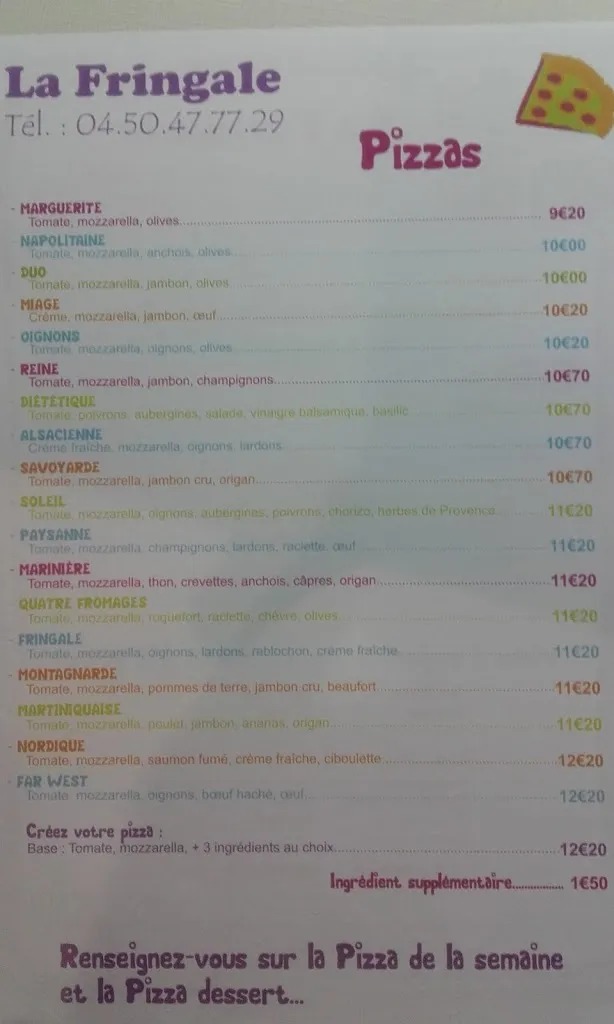 La Fringale
Tél. : 04.50.47.77.29
Pizzas
- MARGUERITE
Tomate, mozzarella, olives 9€20
- NAPOLITAINE
Tomate, mozzarella, anchois, olives 10€00
- DUO
Tomate, mozzarella, jambon, olives 10€00
- MIAGE
Crème, mozzarella, jambon, œuf 10€20
- OIGNONS
Tomate, mozzarella, oignons, olives 10€20
- REINE
Tomate, mozzarella, jambon, champignons 10€70
- DIÉTÉTIQUE
Tomate, poivrons, aubergines, salade, vinaigre balsamique, basilic 10€70
- ALSACIENNE
Crème fraîche, mozzarella, oignons, lardons 10€70
- SAVOYARDE
Tomate, mozzarella, jambon cru, origan 10€70
- SOLEIL
Tomate, mozzarella, oignons, aubergines, poivrons, chorizo, herbes de Provence 11€20
- PAYSANNE
Tomate, mozzarella, champignons, lardons, raclette, œuf 11€20
- MARINIÈRE
Tomate, mozzarella, thon, crevettes, anchois, câpres, origan 11€20
- QUATRE FROMAGES
Tomate, mozzarella, roquefort, raclette, chèvre, olives 11€20
- FRINGALE
Tomate, mozzarella, oignons, lardons, reblochon, crème fraîche 11€20
- MONTAGNARDE
Tomate, mozzarella, pommes de terre, jambon cru, beaufort 11€20
- MARTINIQUAISE
Tomate, mozzarella, poulet, jambon, ananas, origan 11€20
- NORDIQUE
Tomate, mozzarella, saumon fumé, crème fraîche, ciboulette 12€20
- FAR WEST
Tomate, mozzarella, oignons, bœuf haché, œuf 12€20
Créez votre pizza :
Base : Tomate, mozzarella, + 3 ingrédients au choix 12€20
Ingrédient supplémentaire 1€50
Renseignez-vous sur la Pizza de la semaine
et la Pizza dessert...